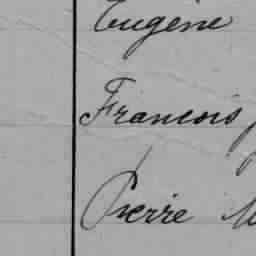 Eugène
Francois
Pierre